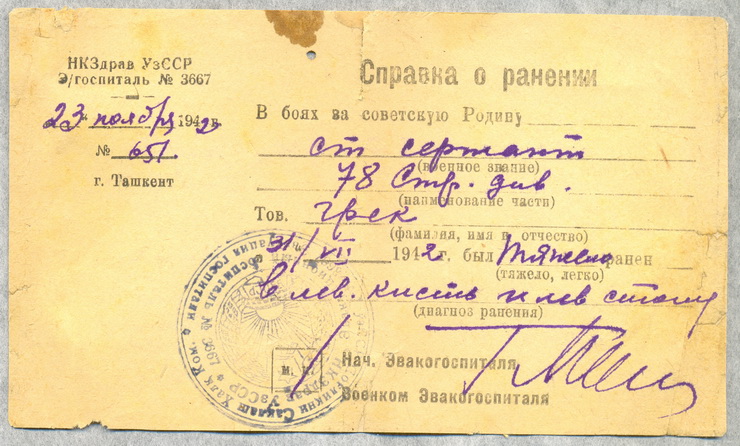 НКЗдрав УзССР
Э/госпиталь № 3667
23 ноября 1942 г.
№ 651
г. Ташкент
Справка о ранении
В боях за советскую Родину
ст сержант
(военное звание)
78 Стр. див.
(наименование части)
Тов. Грек
(фамилия, имя и отчество)
31/VII 1942 г. был тяжело ранен
(тяжело, легко)
в лев. кисть и лев стопу
(диагноз ранения)
м. п.
Нач. Эвакогоспиталя
Военком Эвакогоспиталя